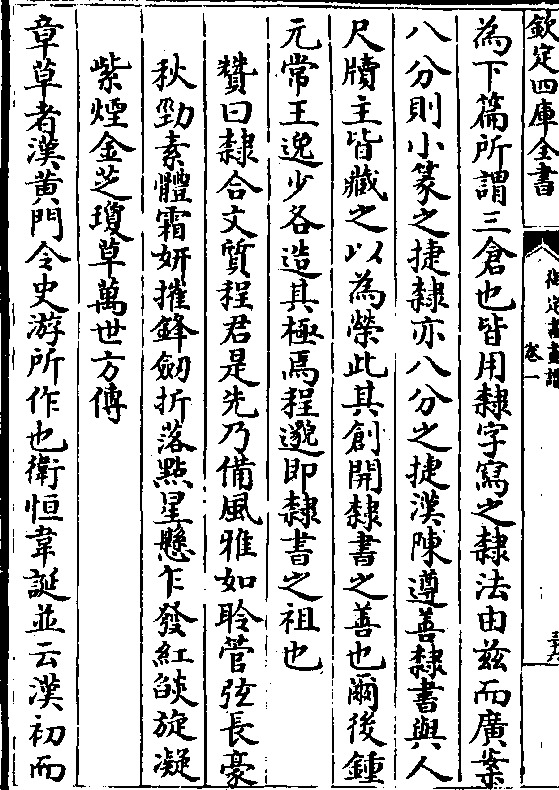 欽定四庫全書
卷一
為下篇所謂三倉也皆用隷字寫之隷法由兹而廣案
八分則小篆之捷隷亦八分之捷漢陳遵善隷書與人
尺牘主皆藏之以為榮此其創開隷書之善也爾後鍾
元常王逸少各造其極焉程邈即隷書之祖也
贊曰隷合文質程君是先乃備風雅如聆管弦長豪
秋勁素體霜妍摧鋒劒折落點星懸乍發紅𦦨旋凝
紫煙金芝瓊草萬世方傳
章草者漢黄門令史游所作也衛恒韋誕並云漢初而